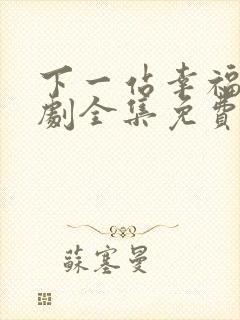 下一站幸福
劇全集免費
蘇塞曼